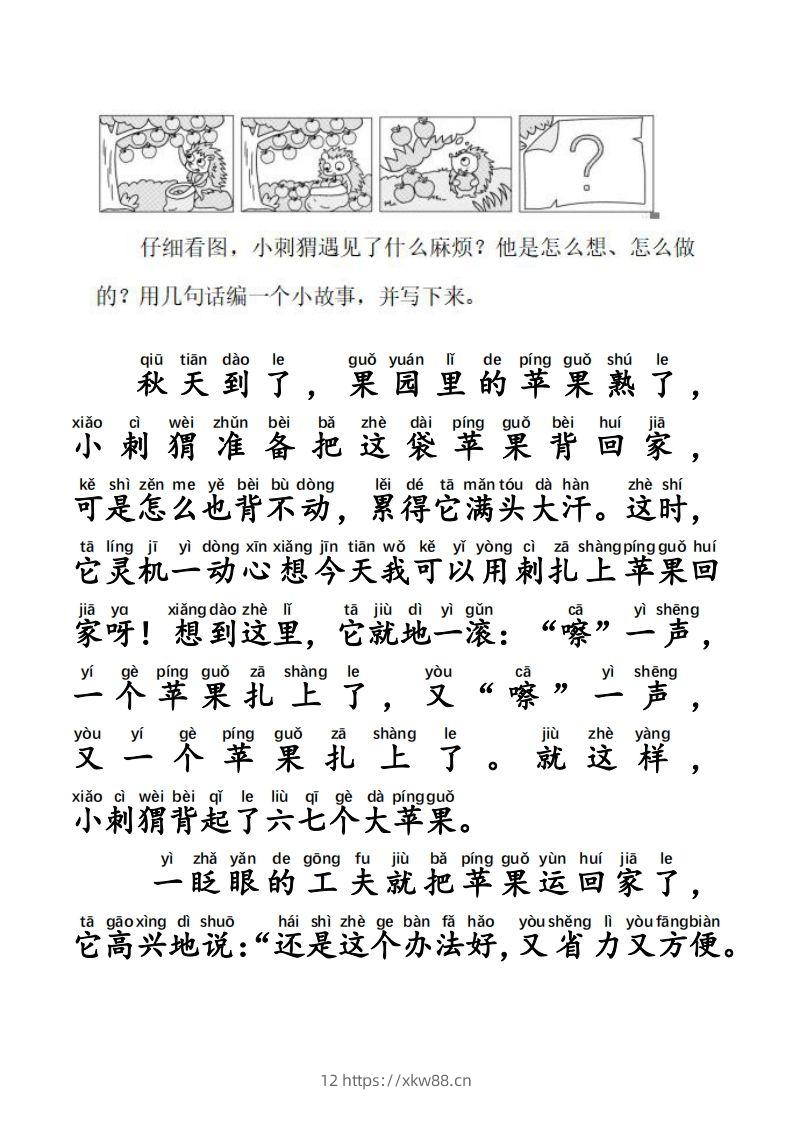 ?
仔细看图，小刺猬遇见了什么麻烦？他是怎么想、怎么做
的？用几句话编一个小故事，并写下来。
qiū tiān dào le guǒ yuán lǐ de píng guǒ shú le
秋天到了，果园里的苹果熟了，
xiǎo cì wèi zhǔn bèi bǎ zhè dài píng guǒ bèi huí jiā
小刺猬准备把这袋苹果背回家，
kě shì zěn me yě bèi bù dòng lěi dé tā mǎn tóu dà hàn zhè shí
可是怎么也背不动，累得它满头大汗。这时，
tā líng jī yì dòng xīn xiǎng jīn tiān wǒ kě yǐ yòng cì zā shàng píng guǒ huí
它灵机一动心想今天我可以用刺扎上苹果回
jiā ya xiǎng dào zhè lǐ tā jiù dì yì gǔn cā yì shēng
家呀！想到这里，它就地一滚：“嚓”一声，
yí gè píng guǒ zā shàng le yòu cā yì shēng
一个苹果扎上了，又“嚓”一声，
yòu yí gè píng guǒ zā shàng le jiù zhè yàng
又一个苹果扎上了。就这样，
xiǎo cì wèi bèi qǐ le liù qī gè dà píng guǒ
小刺猬背起了六七个大苹果。
yì zhǎ yǎn de gōng fu jiù bǎ píng guǒ yùn huí jiā le
一眨眼的工夫就把苹果运回家了，
tā gāo xìng dì shuō hái shì zhè ge bàn fǎ hǎo yòu shěng lì yòu fāng biàn
它高兴地说：“还是这个办法好，又省力又方便。
12 https://xkw88.cn